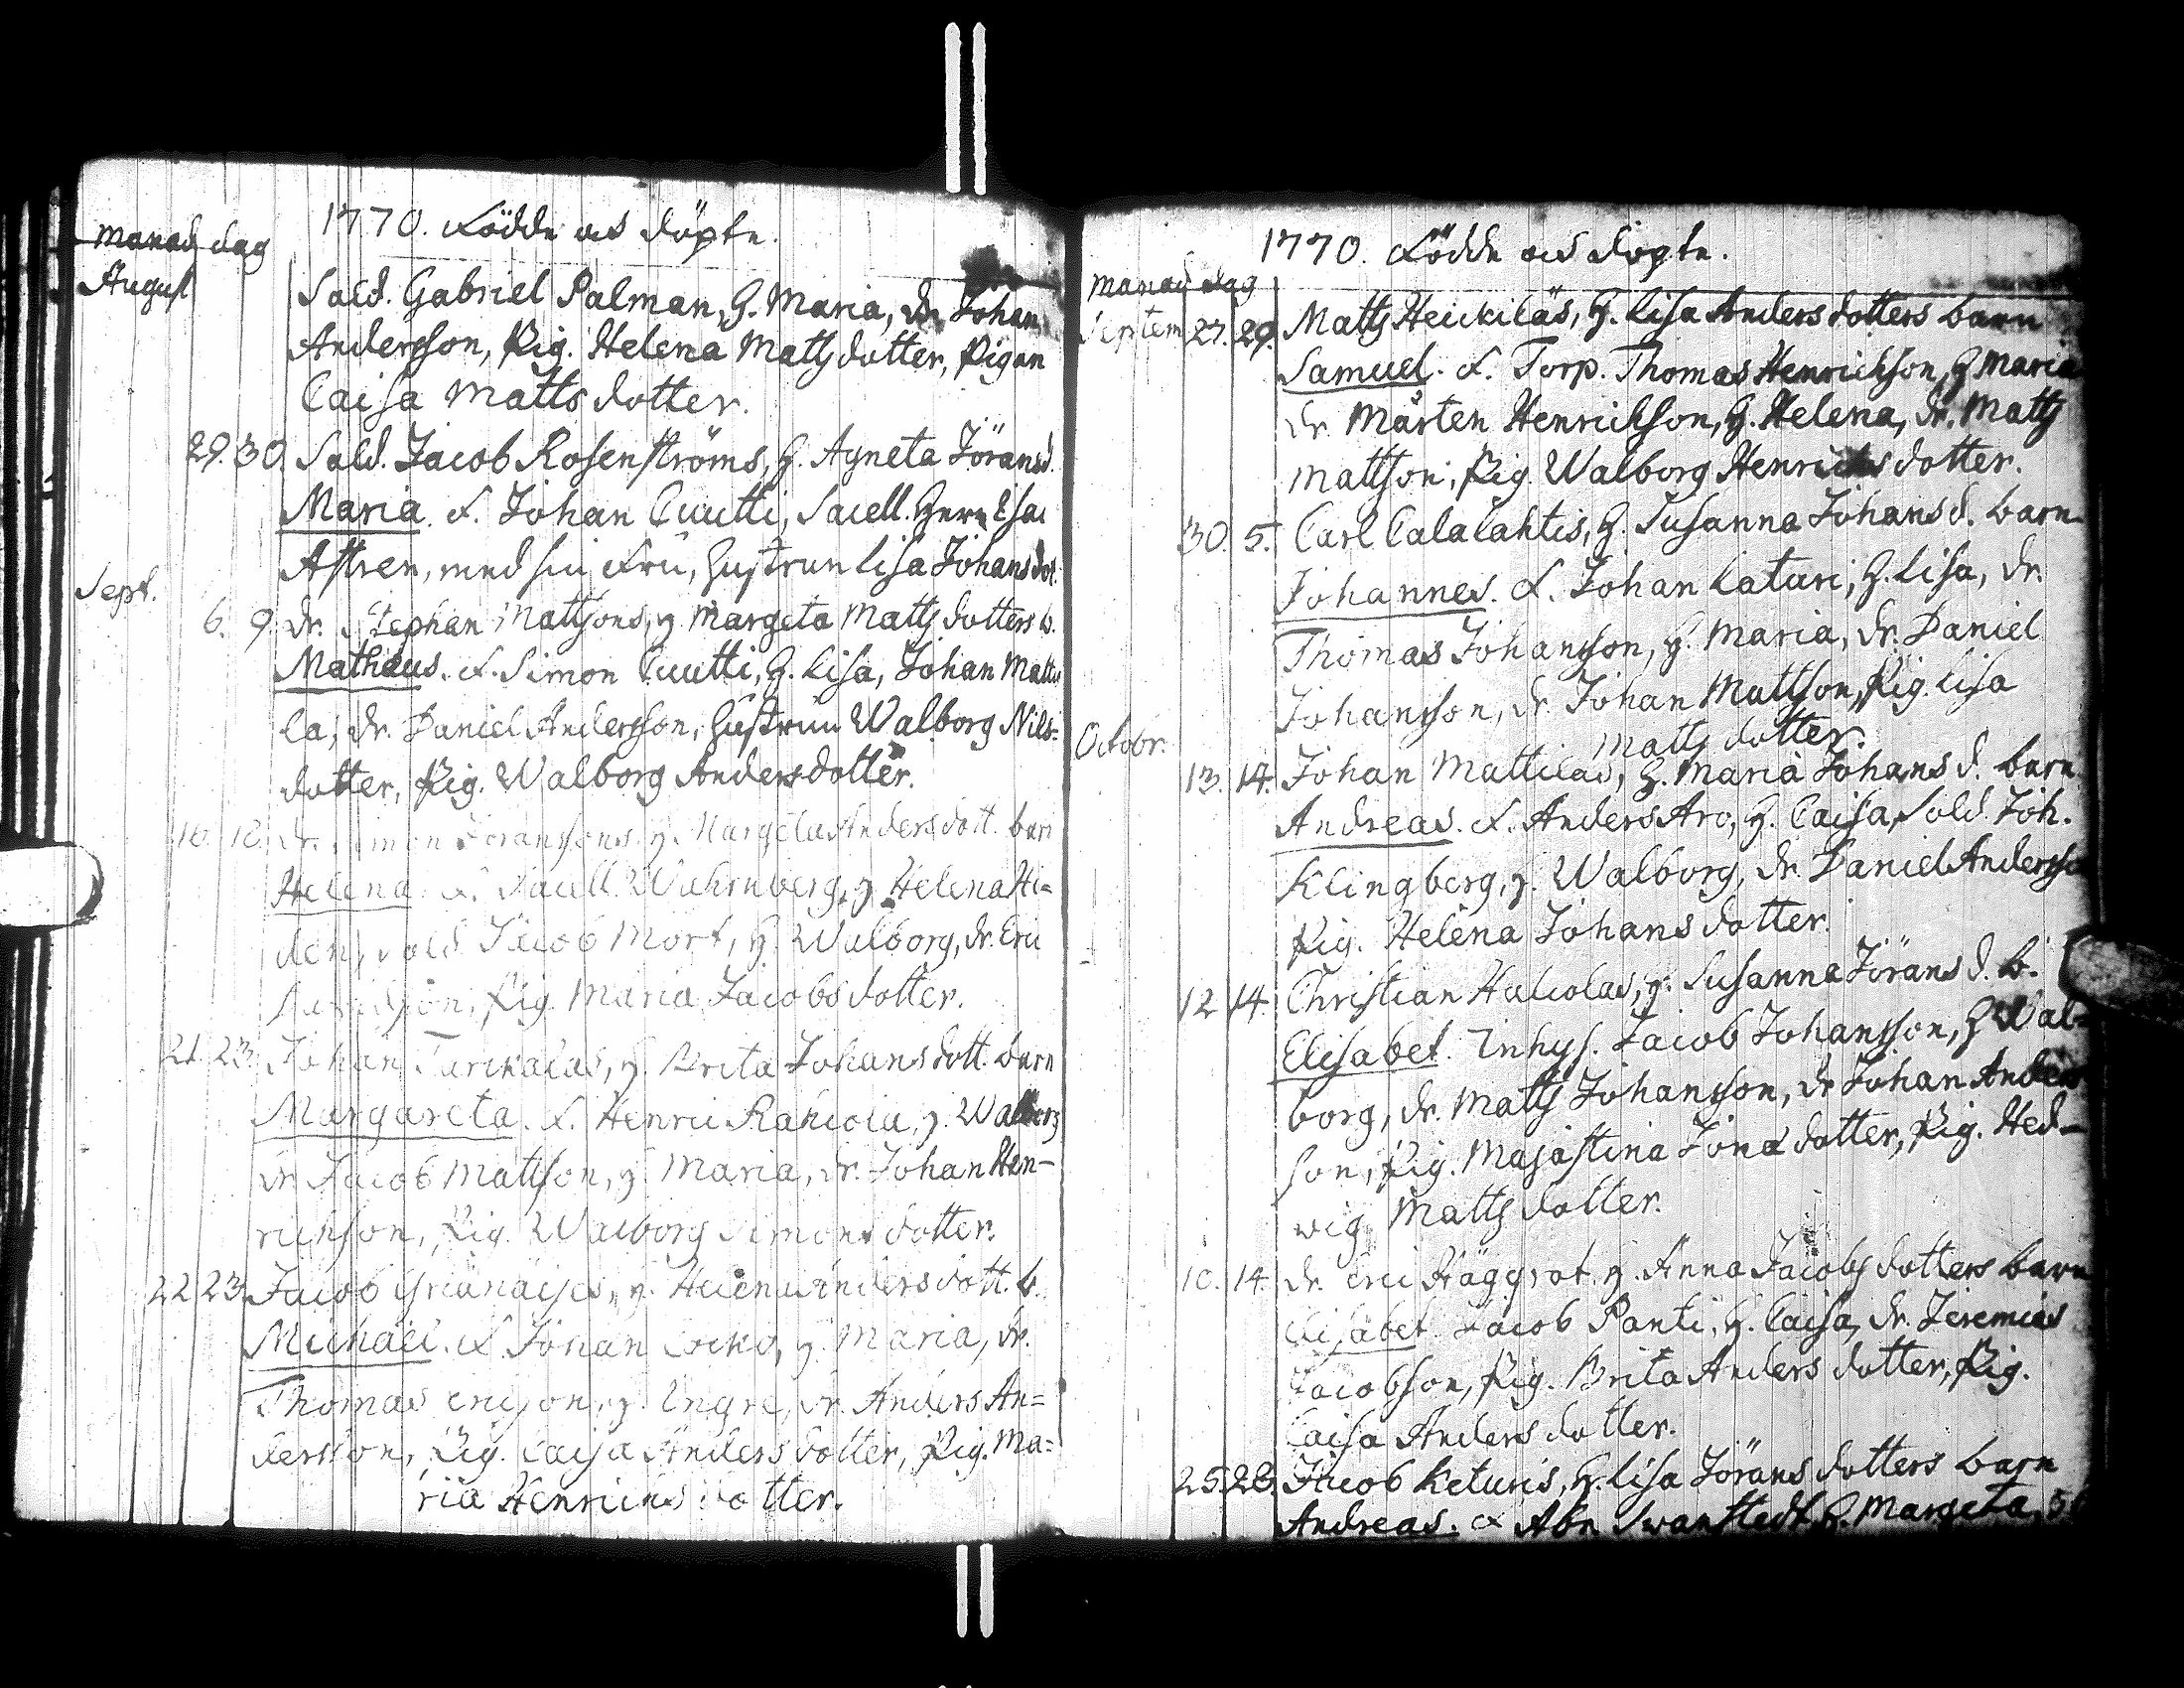 1770. Födde och döpte.
Manad dag
August
Sald. Gabriel Palman, H. Maria, Dr. Johan
Andersson, Pig. Helena Matts dotter, Pigan
Caisa Matts dotter.
29. 30. Sald. Jacob Rosenströms, H. Agneta Jöransd.
Maria. F. Johan Cuutti, Sacell. Herr Esai
Astren, med sin Fru, Hustrun Lisa Johans dot.
Sept.
6. 9. Dr. Stephan Mattsons, H. Margeta Matts dotters b.
Mathaeus. F. Simon Cuutti, H. Lisa, Johan Matti
la, Dr. Daniel Andersson, Hustrun Walborg Nils=
dotter, Pig. Walborg Anders dotter.
Dr. Simon Joranssons, H. Margeta Anders dott. barn
Helena. F. Sacell. H. Helena
Sold. Jacob Mort, H. Walborg, Dr. Eric
Pig. Maria Jacobs dotter.
21. 23. Johan H. Brita Johans dott. barn
Margareta. F. Henric H. Walborg
Dr. Jacob Mattson, H. Maria, Dr. Johan Hen-
ricson, Pig. Walborg Simons dotter.
22. 23. Jacob H. Helena Anders dott. b.
Michaël. F. Johan H. Maria, Dr.
Thomas Ericson, H. Dr. Anders An=
dersson, Pig. Caisa Anders dotter, Pig. Ma=
ria Henrics dotter.
1770. Födde och döpte.
Manad dag
Septem 27. 29. Matts Heickiläs, H. Lisa Anders dotters barn
Samuel. F. Torp. Thomas Henrichson, H. Maria
Dr. Mårten Henrichson, H. Helena, Dr. Matts
Mattson, Pig. Walborg Henrichs dotter.
30. 5. Carl Calalahtis, H. Susanna Johans d. barn
Johannes. F. Johan Katuri, H. Lisa, Dr.
Thomas Johansson, H. Maria, Dr. Daniel
Johansson, Dr. Johan Mattson, Pig. Lisa
Matts dotter.
Octobr.
13. 14. Johan Mattilas, H. Maria Johans d. barn
Andreas. F. Anders Aro, H. Caisa, Sold. Joh.
Klingberg, H. Walborg, Dr. Daniel Andersso
Pig. Helena Johans dotter.
12. 14. Christian H. Susanna Jörans d. b.
Elisabet. Inhys. Jacob Johansson, H. Wal-
borg, Dr. Matts Johansson, Dr. Johan Anders
son, Pig. Majastina Jons dotter, Pig. Hed-
wig Matts dotter.
10. 14. Dr. Eric Häggrot, H. Anna Jacobs dotters barn
Elisabet. Jacob Panti, H. Caisa, Dr. Jeremias
Jacobson, Pig. Brita Anders dotter, Pig.
Caisa Anders dotter.
25. 28. Jacob Keturis, H. Lisa Jörans dotters barn
Andreas. F. Abr. Swanstedt, H. Margeta,